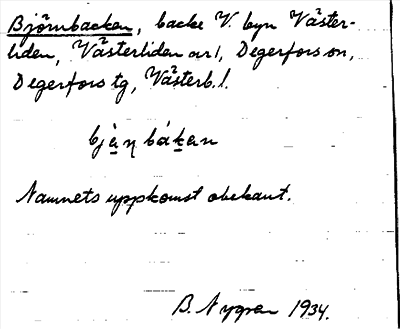 Björnbacken, backe V. byn Väster-
liden, Västerliden nr 1, Degerfors sn,
Degerfors tg, Västerb. l.
bjà̱ɳbáḵan
Namnets uppkomst obekant.
B. Nygren 1934.